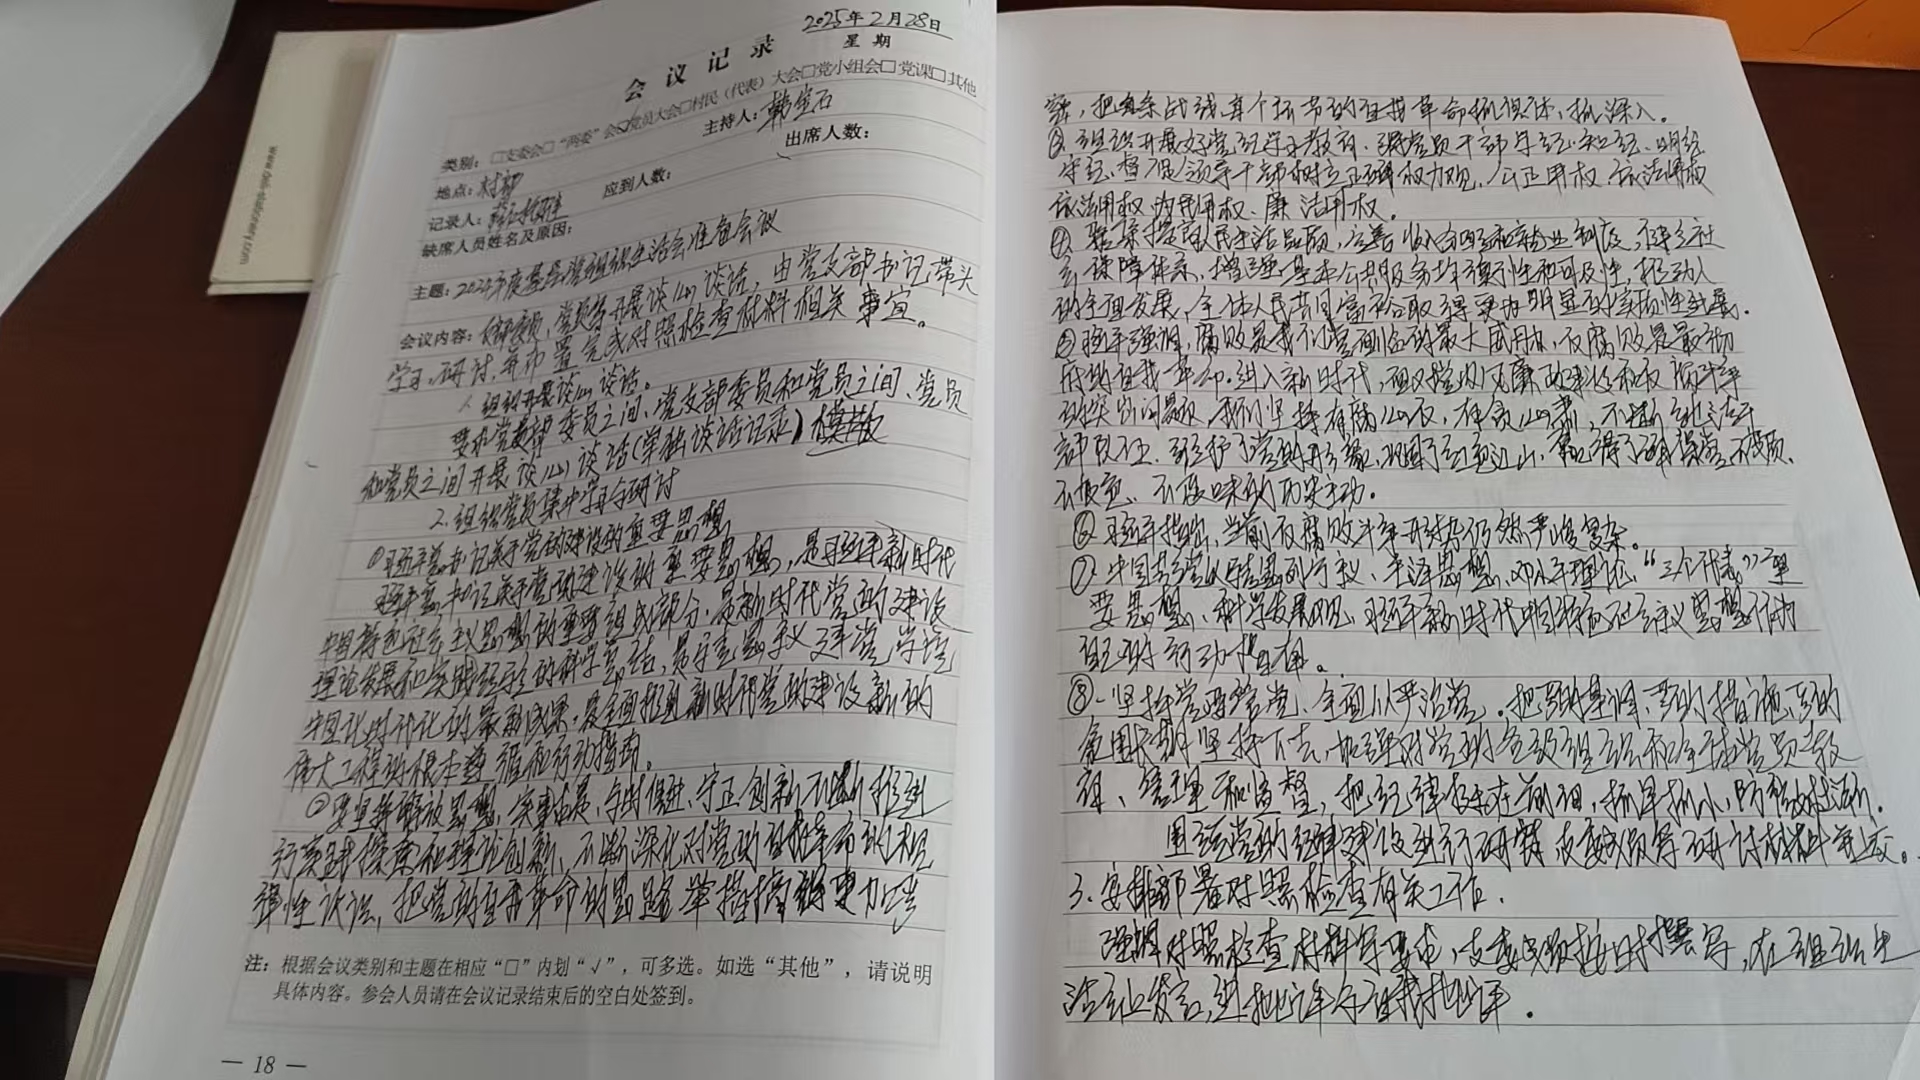 2025年2月28日
会议记录 星期
类别：□支委会□“两委”会□党员大会□村民（代表）大会□党小组会□党课□其他
地点：村部 主持人：韩宝石
记录人： 应到人数： 出席人数：
缺席人员姓名及原因：
主题：2024年度基层党组织生活会准备会议
会议内容： 党员等开展谈心谈话，由党支部书记带头
学习、研讨，并布置完成对照检查材料相关事宜。
1. 组织开展谈心谈话。
要求党支部委员之间、党支部委员和党员之间、党员
和党员之间开展谈心谈话（单独谈话记录）模散
2. 组织党员集中学习研讨
①习近平总书记关于党的建设的重要思想
习近平总书记关于党的建设的重要思想，是习近平新时代
中国特色社会主义思想的重要组成部分，是新时代党的建设
理论发展和实践经验的科学总结，是马克思主义建党学说
中国化时代化的最新成果，是全面推进新时代党的建设新的
伟大工程的根本遵循和行动指南。
②要坚持解放思想、实事求是、与时俱进、守正创新，不断推进
行实践探索和理论创新，不断深化对党的自我革命的规
律性认识，把党的自我革命的思路举措搞得更加严
注：根据会议类别和主题在相应“□”内划“√”，可多选。如选“其他”，请说明
具体内容。参会人员请在会议记录结束后的空白处签到。
— 18 —
www.deli-stationery.com
密，把每条战线、每个环节的自我革命抓具体、抓深入。
③组织开展好党纪学习教育，引导党员干部学纪、知纪、明纪、
守纪，督促领导干部树立正确权力观，公正用权、依法用权
依法用权、为民用权、廉洁用权。
④ 要 提高人民生活品质，完善收入分配和就业制度，健全社
会保障体系，增强基本公共服务均衡性和可及性，推动人
的全面发展、全体人民共同富裕取得更为明显的实质性进展。
⑤习近平强调，腐败是我们党面临的最大威胁，反腐败是最彻
底的自我革命。进入新时代，面对 党风廉政建设和反腐败斗争
的突出问题，我们坚持有腐必反、有贪必肃，不断 清
除 ，守护了党的形象，巩固了红色江山， 赢得了确保党不变质、
不变色、不变味的历史主动。
⑥习近平指出，当前反腐败斗争形势仍然严峻复杂。
⑦中国共产党以马克思列宁主义、毛泽东思想、邓小平理论、“三个代表”重
要思想、科学发展观、习近平新时代中国特色社会主义思想作为
自己的行动指南。
⑧一坚持党要管党、全面从严治党。把严的基调、严的措施、严的
氛围长期坚持下去，加强对党的各级组织和全体党员教
育、管理和监督，把纪律挺在前面，抓早抓小、防微杜渐。
围绕党的纪律建设进行研讨，支委成员写研讨材料并上交。
3. 安排部署对照检查有关工作。
强调对照检查材料写要求，支委成员按时撰写，在组织生
活会上发言，进 批评与自我批评。